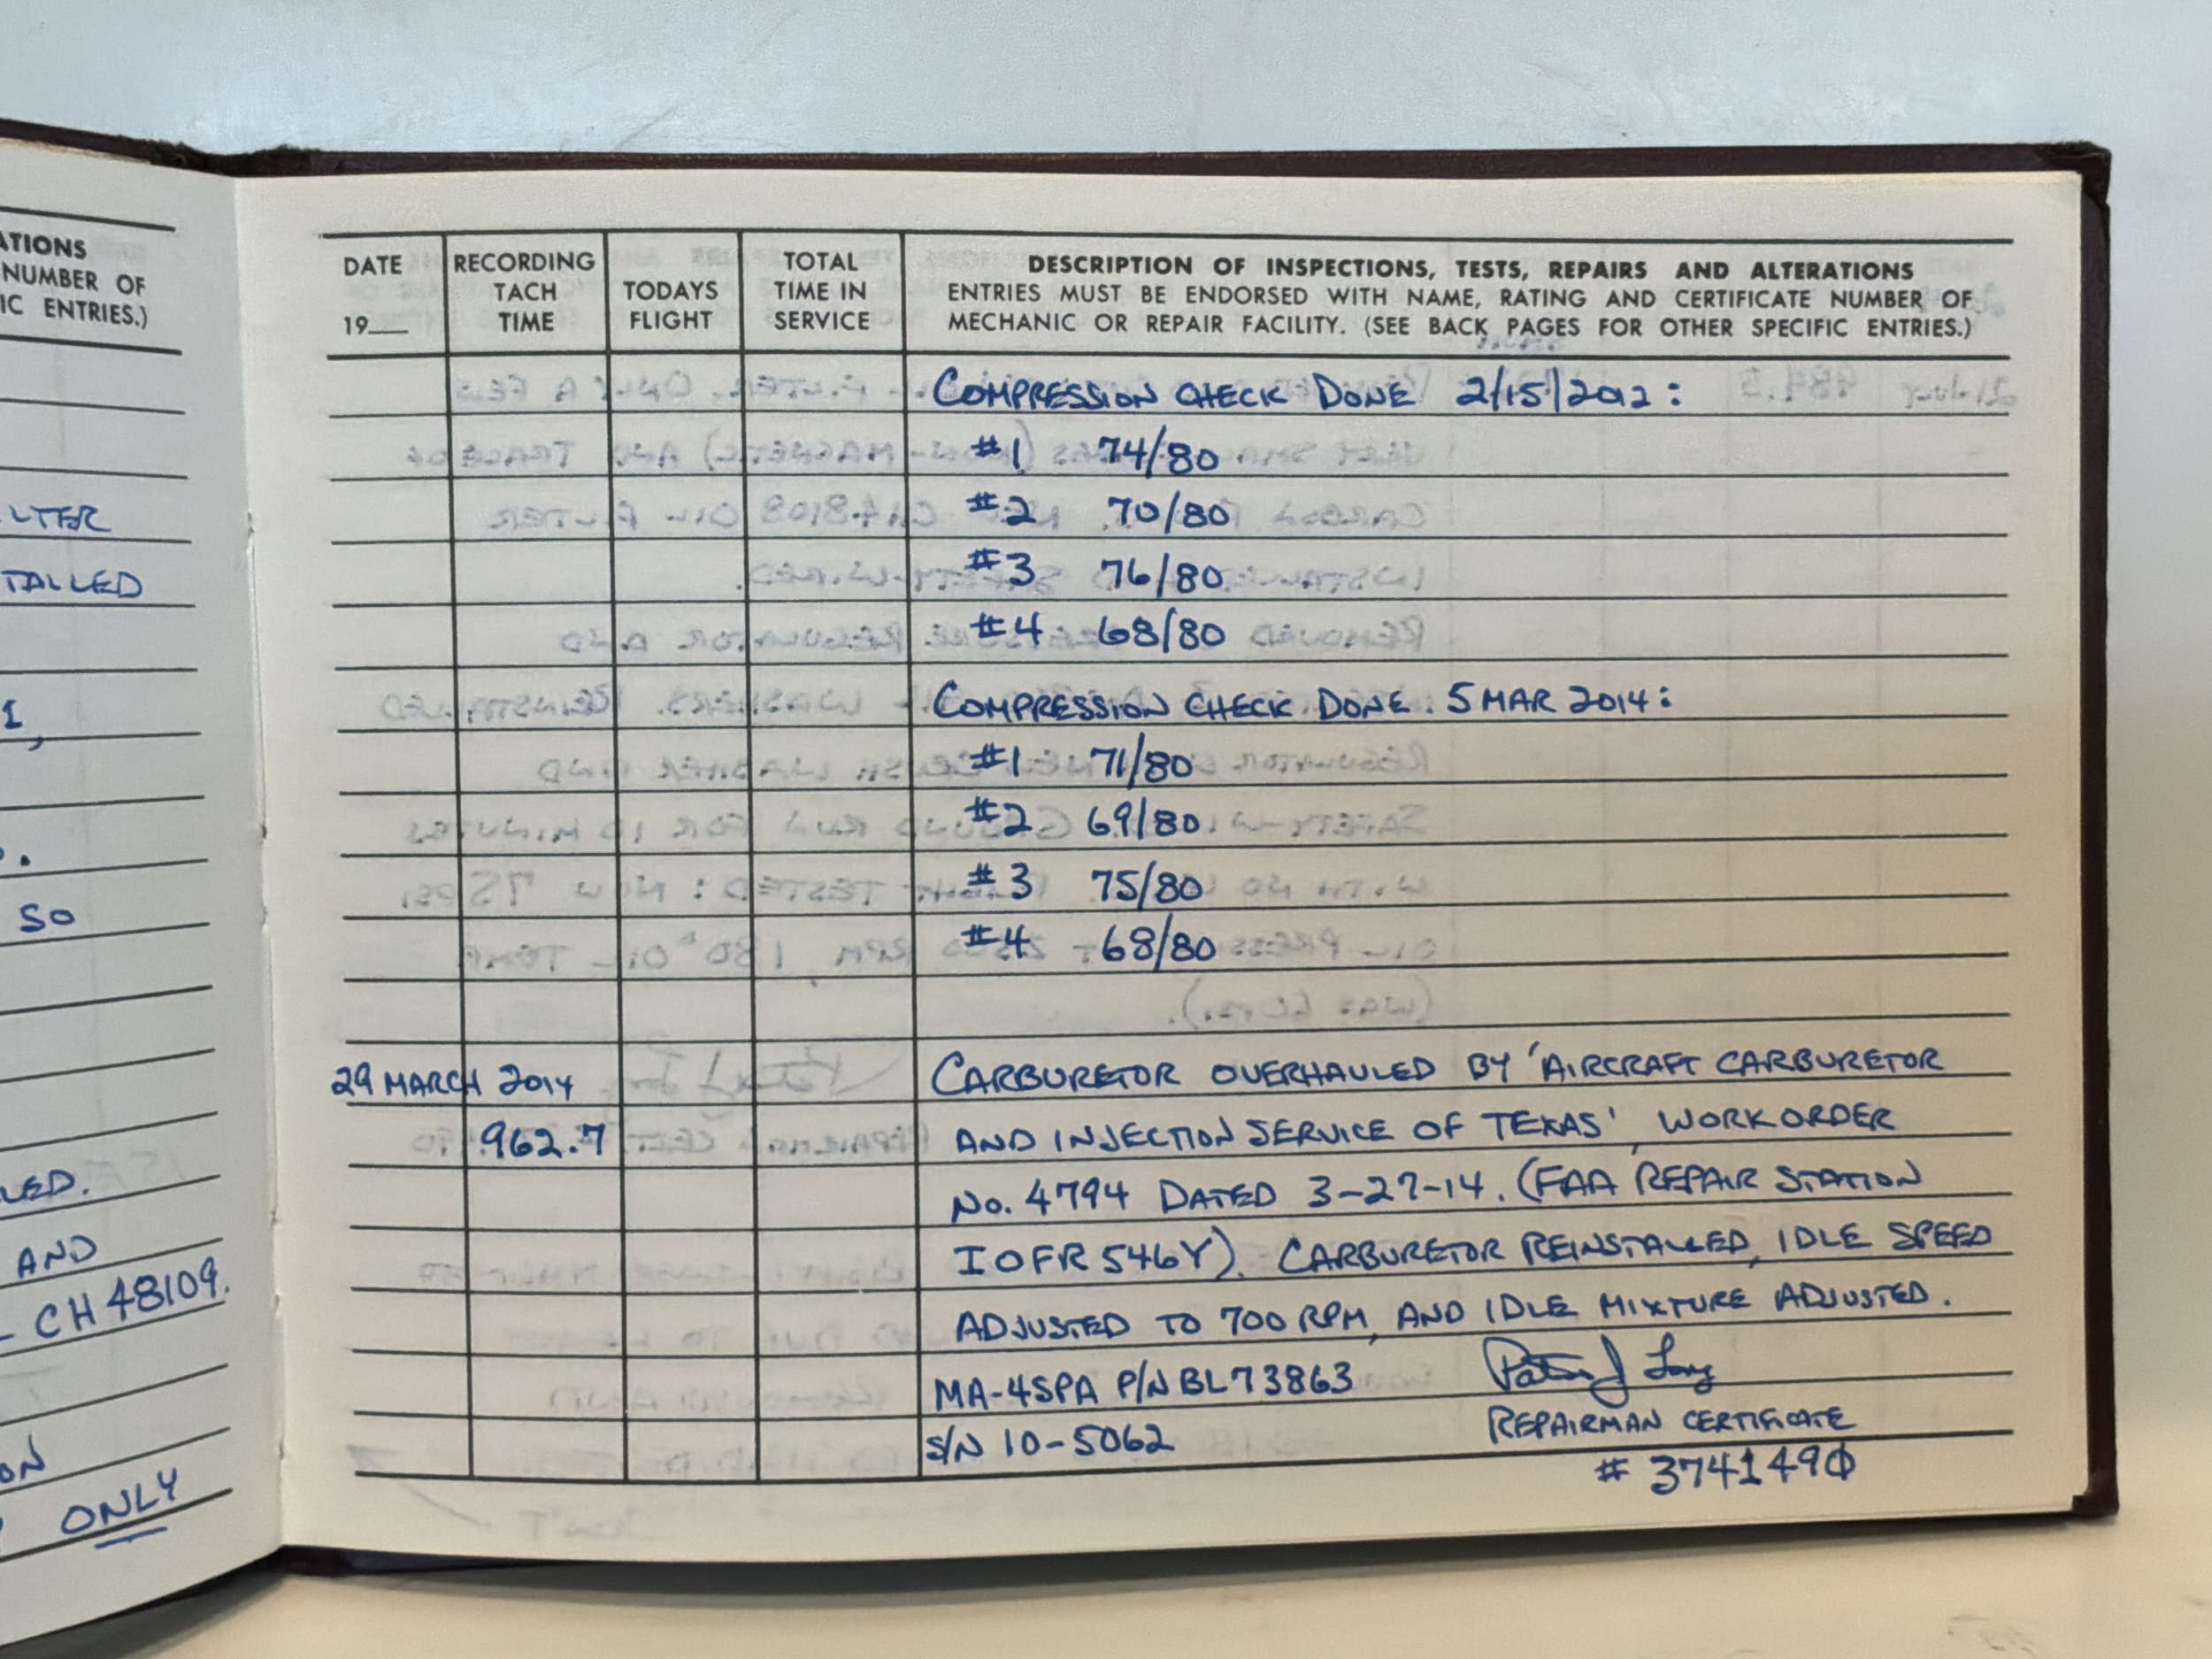 ATIONS
NUMBER OF
IC ENTRIES.)
LTER
TALLED
1,
.
SO
LED.
AND
- CH48109.
ON
ONLY
DATE
19__
RECORDING
TACH
TIME
TODAYS
FLIGHT
TOTAL
TIME IN
SERVICE
DESCRIPTION OF INSPECTIONS, TESTS, REPAIRS AND ALTERATIONS
ENTRIES MUST BE ENDORSED WITH NAME, RATING AND CERTIFICATE NUMBER OF
MECHANIC OR REPAIR FACILITY. (SEE BACK PAGES FOR OTHER SPECIFIC ENTRIES.)
COMPRESSION CHECK DONE 2/15/2012:
#1 74/80
#2 70/80
#3 76/80
#4 68/80
COMPRESSION CHECK DONE 5 MAR 2014:
#1 71/80
#2 69/80
#3 75/80
#4 68/80
29 MARCH 2014 CARBURETOR OVERHAULED BY 'AIRCRAFT CARBURETOR
962.7 AND INJECTION SERVICE OF TEXAS', WORK ORDER
No. 4794 DATED 3-27-14. (FAA REPAIR STATION
IOFR546Y). CARBURETOR REINSTALLED, IDLE SPEED
ADJUSTED TO 700 RPM, AND IDLE MIXTURE ADJUSTED.
MA-4SPA P/N BL73863
S/N 10-5062 REPAIRMAN CERTIFICATE
# 3741490